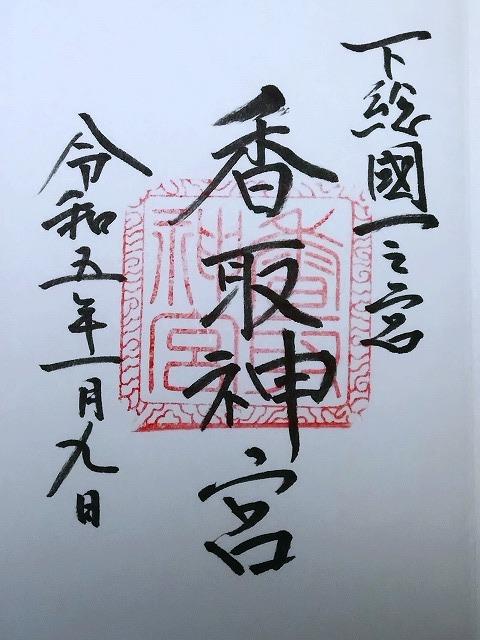 下総國一之宮
香取神宮
令和五年一月九日
香取神宮